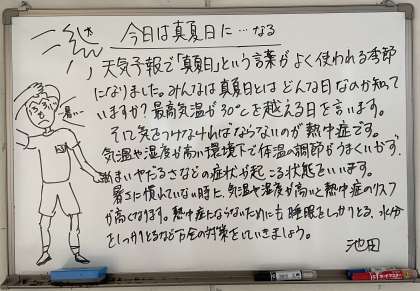 今日は真夏日に…なる
天気予報で「真夏日」という言葉がよく使われる季節
になりました。みんなは真夏日とはどんな日なのか知って
いますか？最高気温が30℃を越える日を言います。
そして気をつけなければならないのが熱中症です。
気温や湿度が高い環境下で体温の調節がうまくいかず、
めまいやだるさなどの症状が起こる状態をいいます。
暑さに慣れていない時に、気温や湿度が高いと熱中症のリスク
が高くなります。熱中症にならないためにも睡眠をしっかりとる、水分
をしっかりとるなど万全の対策をしていきましょう。
池田
暑い…